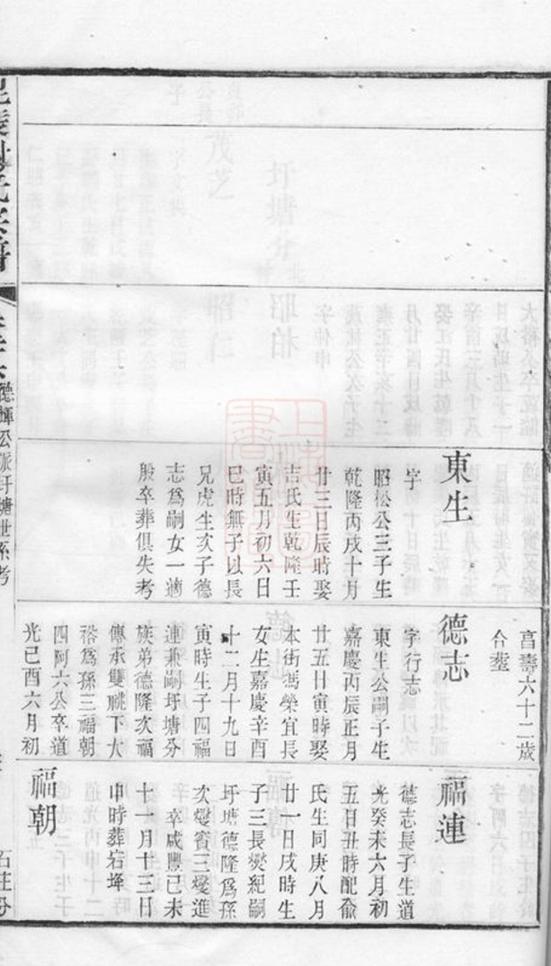 東生
字
昭松公三子生
乾隆丙戌十月
廿三日辰時娶
吉氏生乾隆壬
寅五月初六日
巳時無子以長
兄虎生次子德
志爲嗣女一適
殷卒葬俱失考
享壽六十二歲
合塟
德志
字行志
東生公嗣子生
嘉慶丙辰正月
廿五日寅時娶
本街馮榮宜長
女生嘉慶辛酉
十二月十九日
寅時生子四福
連兼嗣圩塘分
族弟德隆次福
傳承雙祧下大
裕爲孫三福朝
四阿六公卒道
光己酉六月初
福連
德志長子生道
光癸未六月初
五日丑時配兪
氏生同庚八月
廿一日戌時生
子三長爕紀嗣
圩塘德隆爲孫
次爕賓三爕進
卒咸豐己未
十一月十三日
申時葬宕垟
福朝
德輝公派圩塘世系考